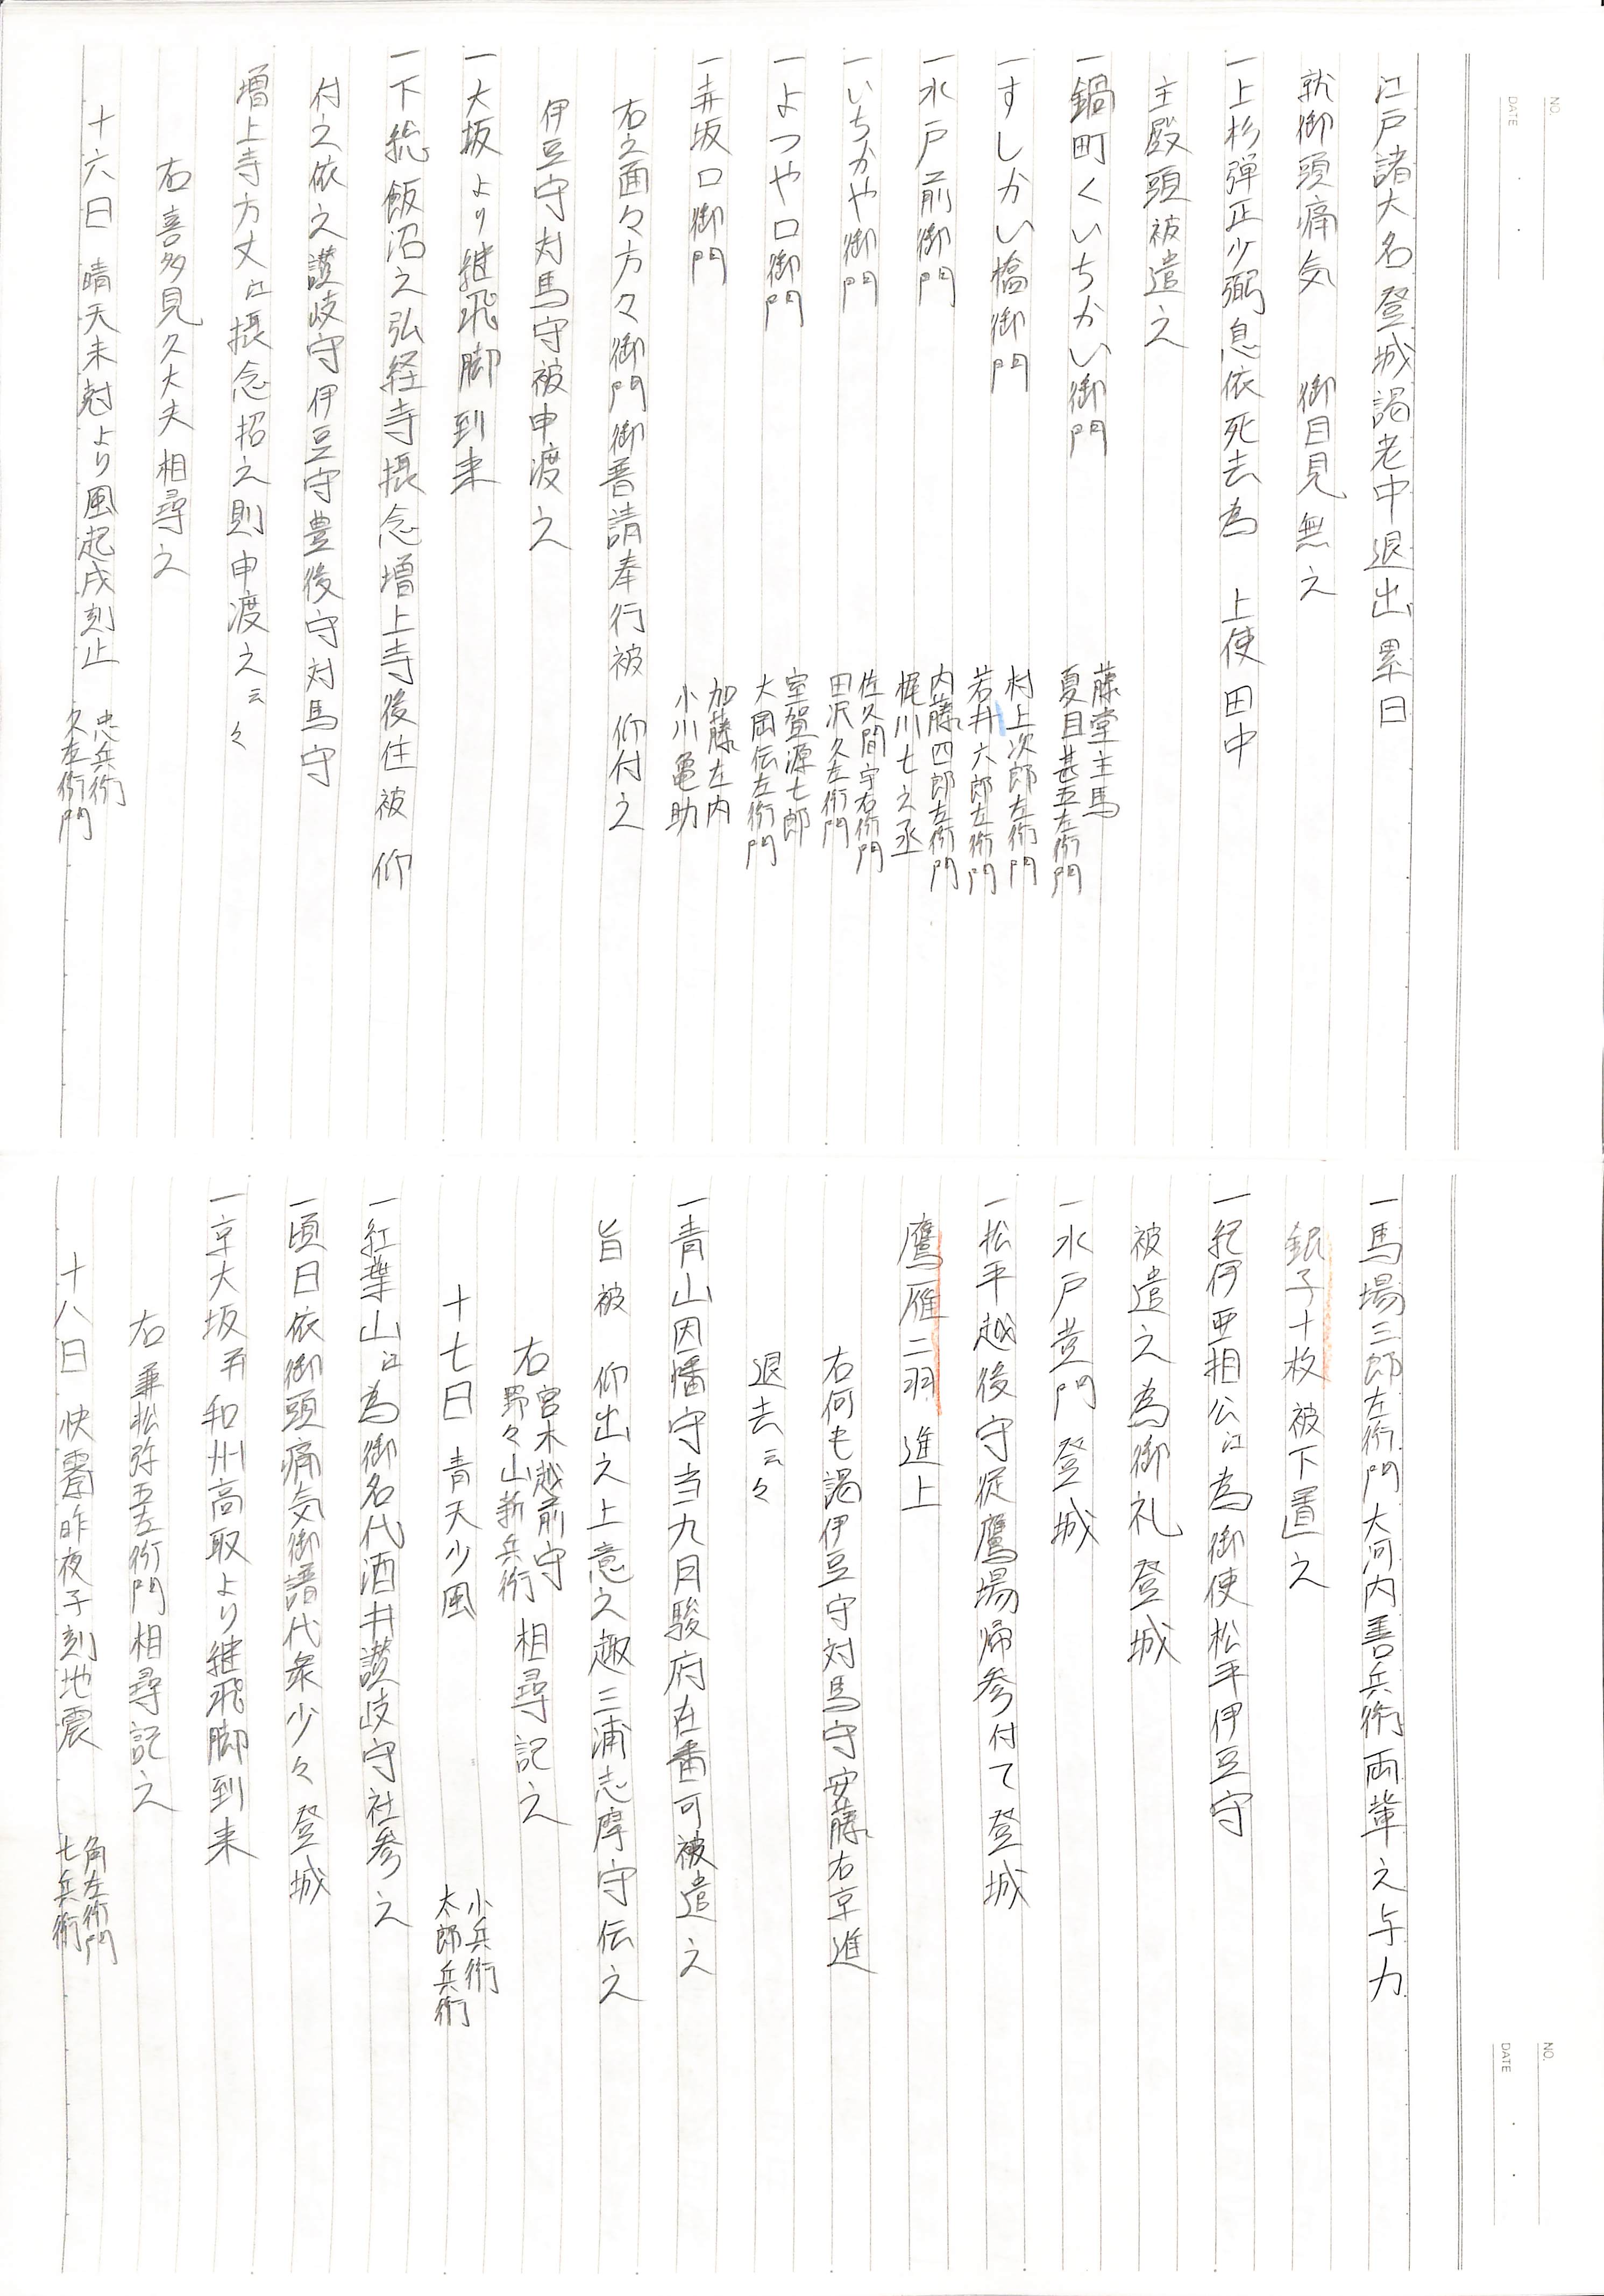 NO.
DATE
江戸諸大名登城謁老中退出累日
就御頭痛気　御目見無之
一上杉弾正少弼息依死去為　上使田中
主殿頭被遣之
一鍋町くいちかい御門　藤堂主馬
夏目甚五左衛門
一すしかい橋御門　村上次郎左衛門
若井六郎左衛門
一水戸前御門　内藤四郎左衛門
梶川七之丞
一いちかや御門　佐久間宇右衛門
田沢久左衛門
一よつや口御門　室賀源七郎
大岡伝左衛門
一赤坂口御門　加藤左内
小川亀助
右之面々方々御門御普請奉行被　仰付之
伊豆守対馬守被申渡之
一大坂より継飛脚到来
一下総飯沼之弘経寺摂念増上寺後住被　仰
付之依之讃岐守伊豆守豊後守対馬守
増上寺方丈江摂念招之則申渡之云々
右喜多見久大夫相尋之
十六日　晴天未刻より風起戌刻止　忠兵衛
久左衛門
NO.
DATE
一馬場三郎左衛門大河内善兵衛両輩之与力
銀子十枚被下置之
一紀伊亜相公江為御使松平伊豆守
被遣之為御礼登城
一水戸黄門登城
一松平越後守従鷹場帰参付て登城
鷹雁二羽進上
右何も謁伊豆守対馬守安藤右京進
退去云々
一青山因幡守当九月駿府在番可被遣之
旨被　仰出之上意之趣三浦志摩守伝之
右宮木越前守
野々山新兵衛　相尋記之
十七日　青天少風　小兵衛
太郎兵衛
一紅葉山江為御名代酒井讃岐守社参之
一頃日依御頭痛気御譜代衆少々登城
一京大坂并和州高取より継飛脚到来
右兼松弥五左衛門相尋記之
十八日　快霽昨夜子刻地震　角左衛門
七兵衛